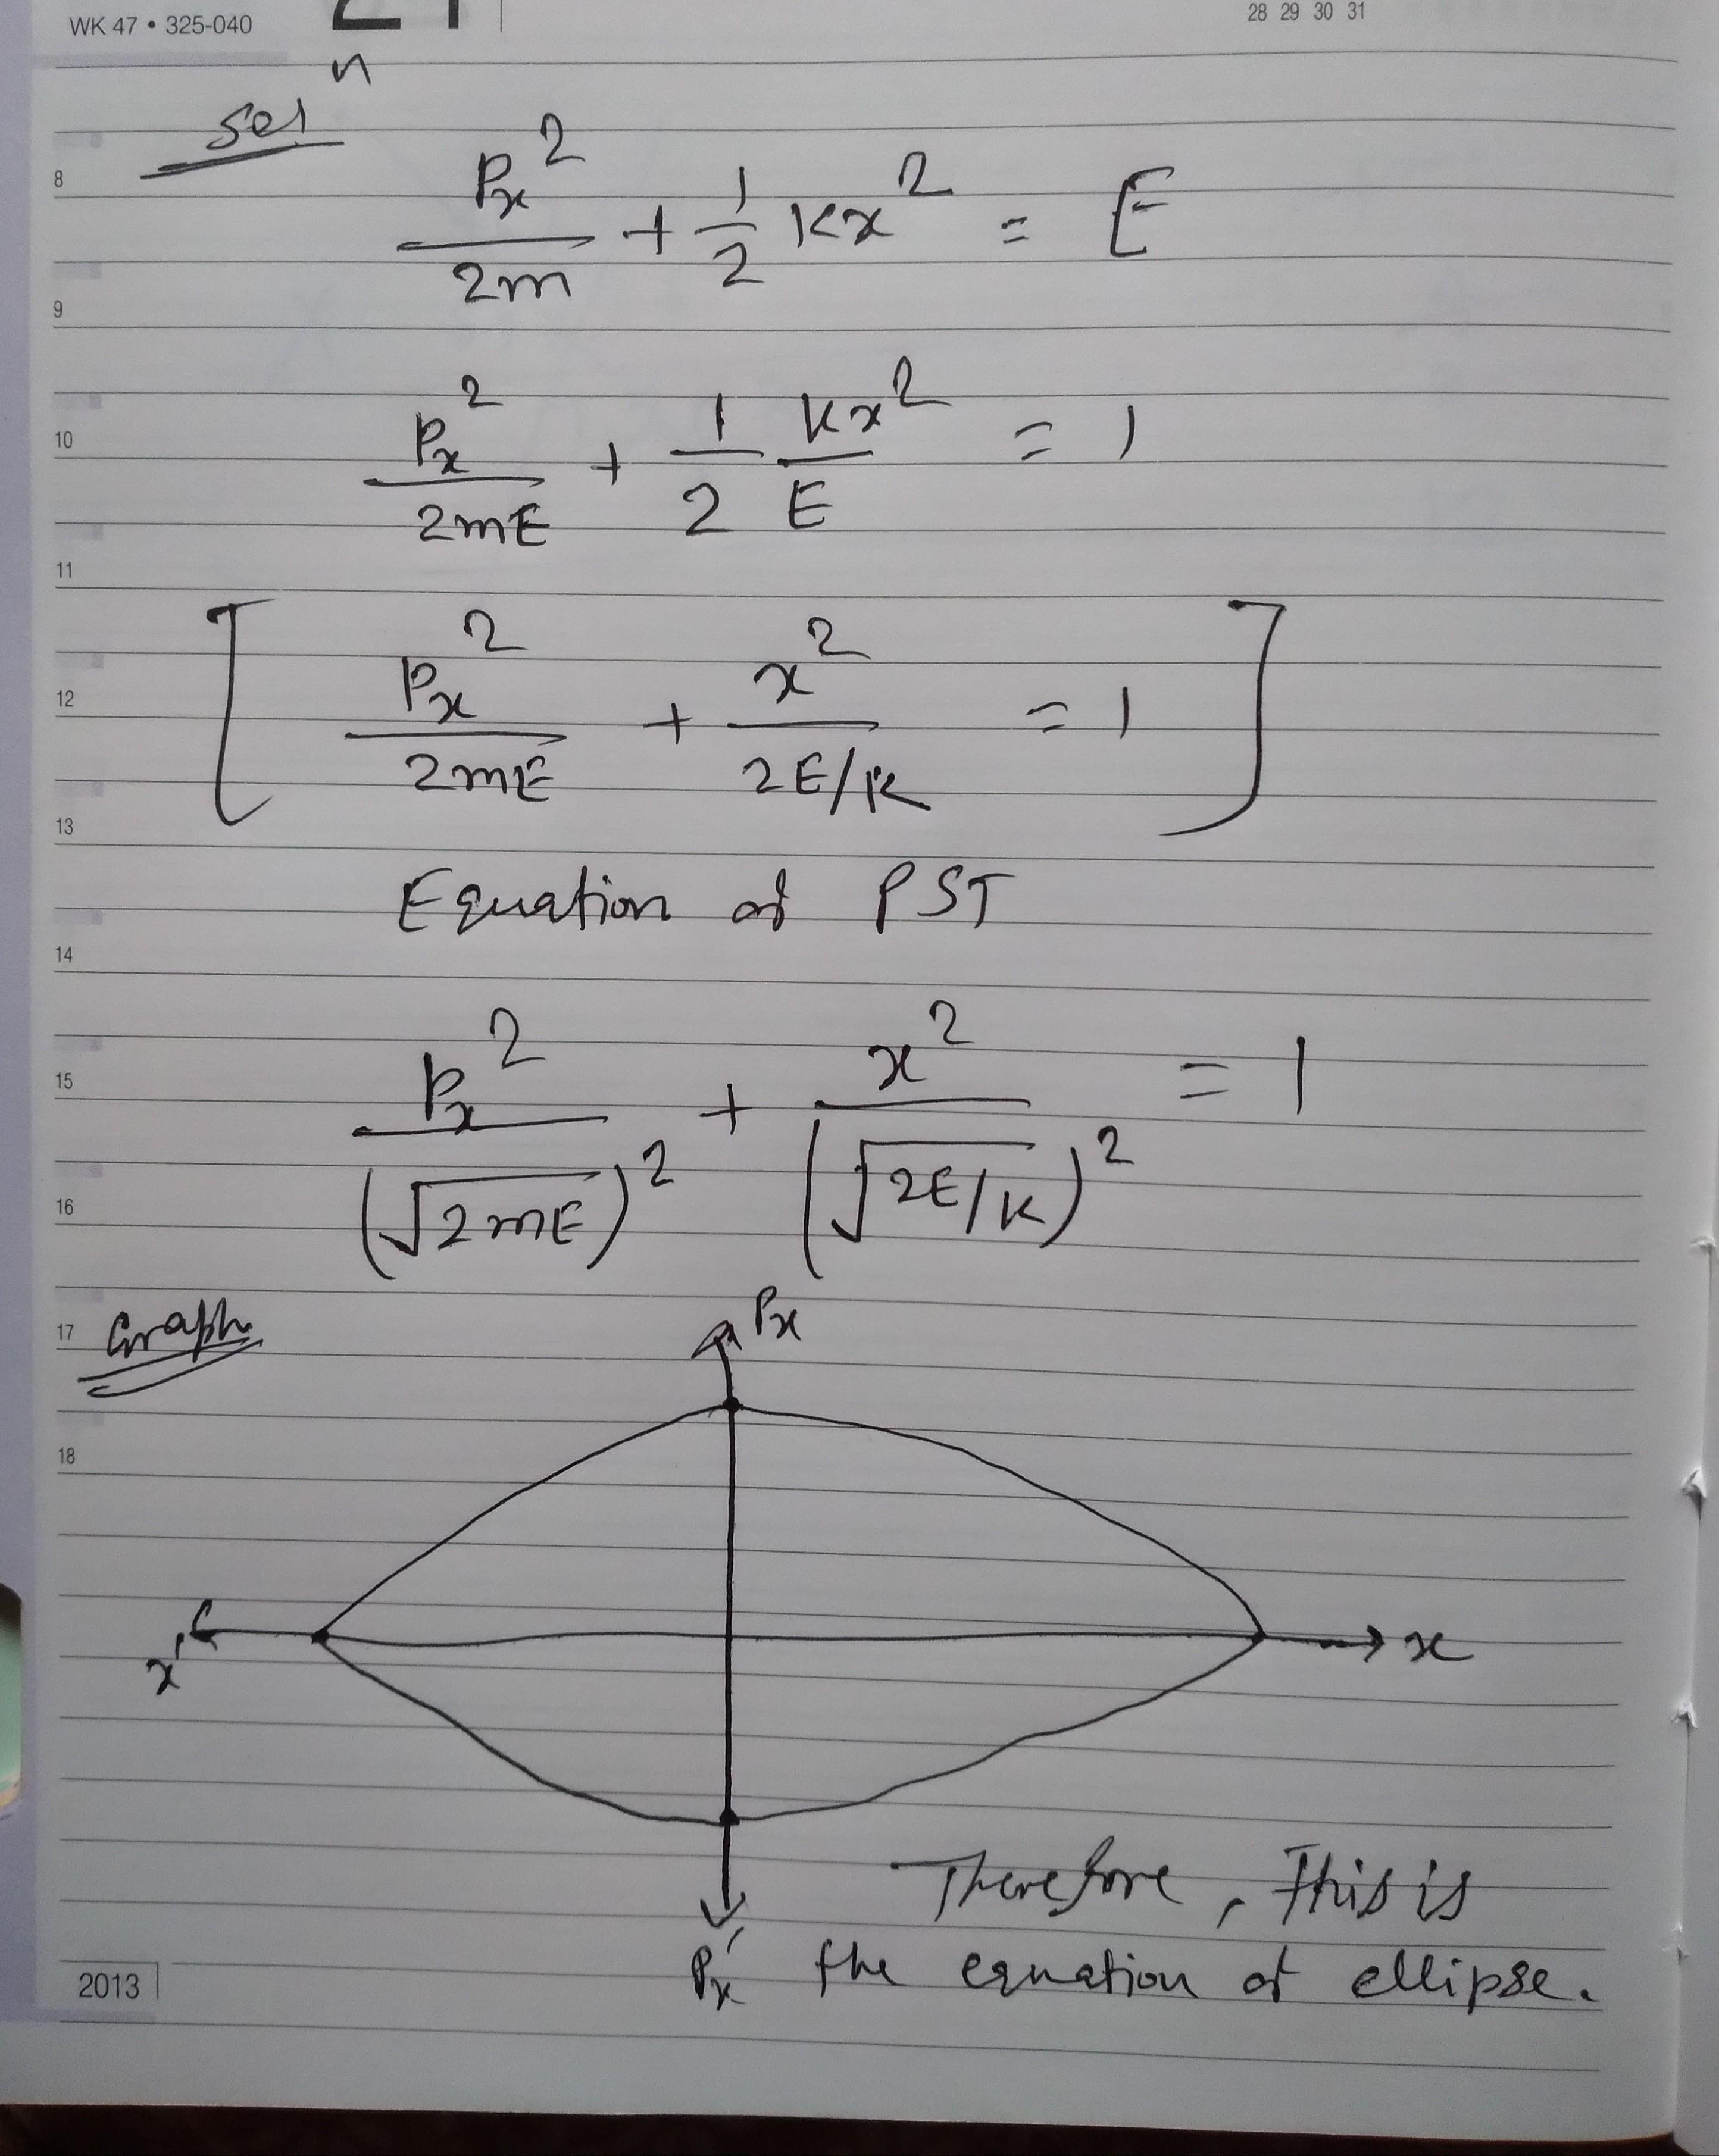 WK 47 • 325-040
28 29 30 31
Solⁿ
8
Px²/2m + 1/2 Kx² = E
9
10
Px²/2mE + 1/2 Kx²/E = 1
11
12
[ Px²/2mE + x²/2E/K = 1 ]
13
Equation of PST
14
15
Px²/(√2mE)² + x²/(√2E/K)² = 1
16
17
Graph
Px
18
x' x
Therefore, This is
Px' the equation of ellipse.
2013